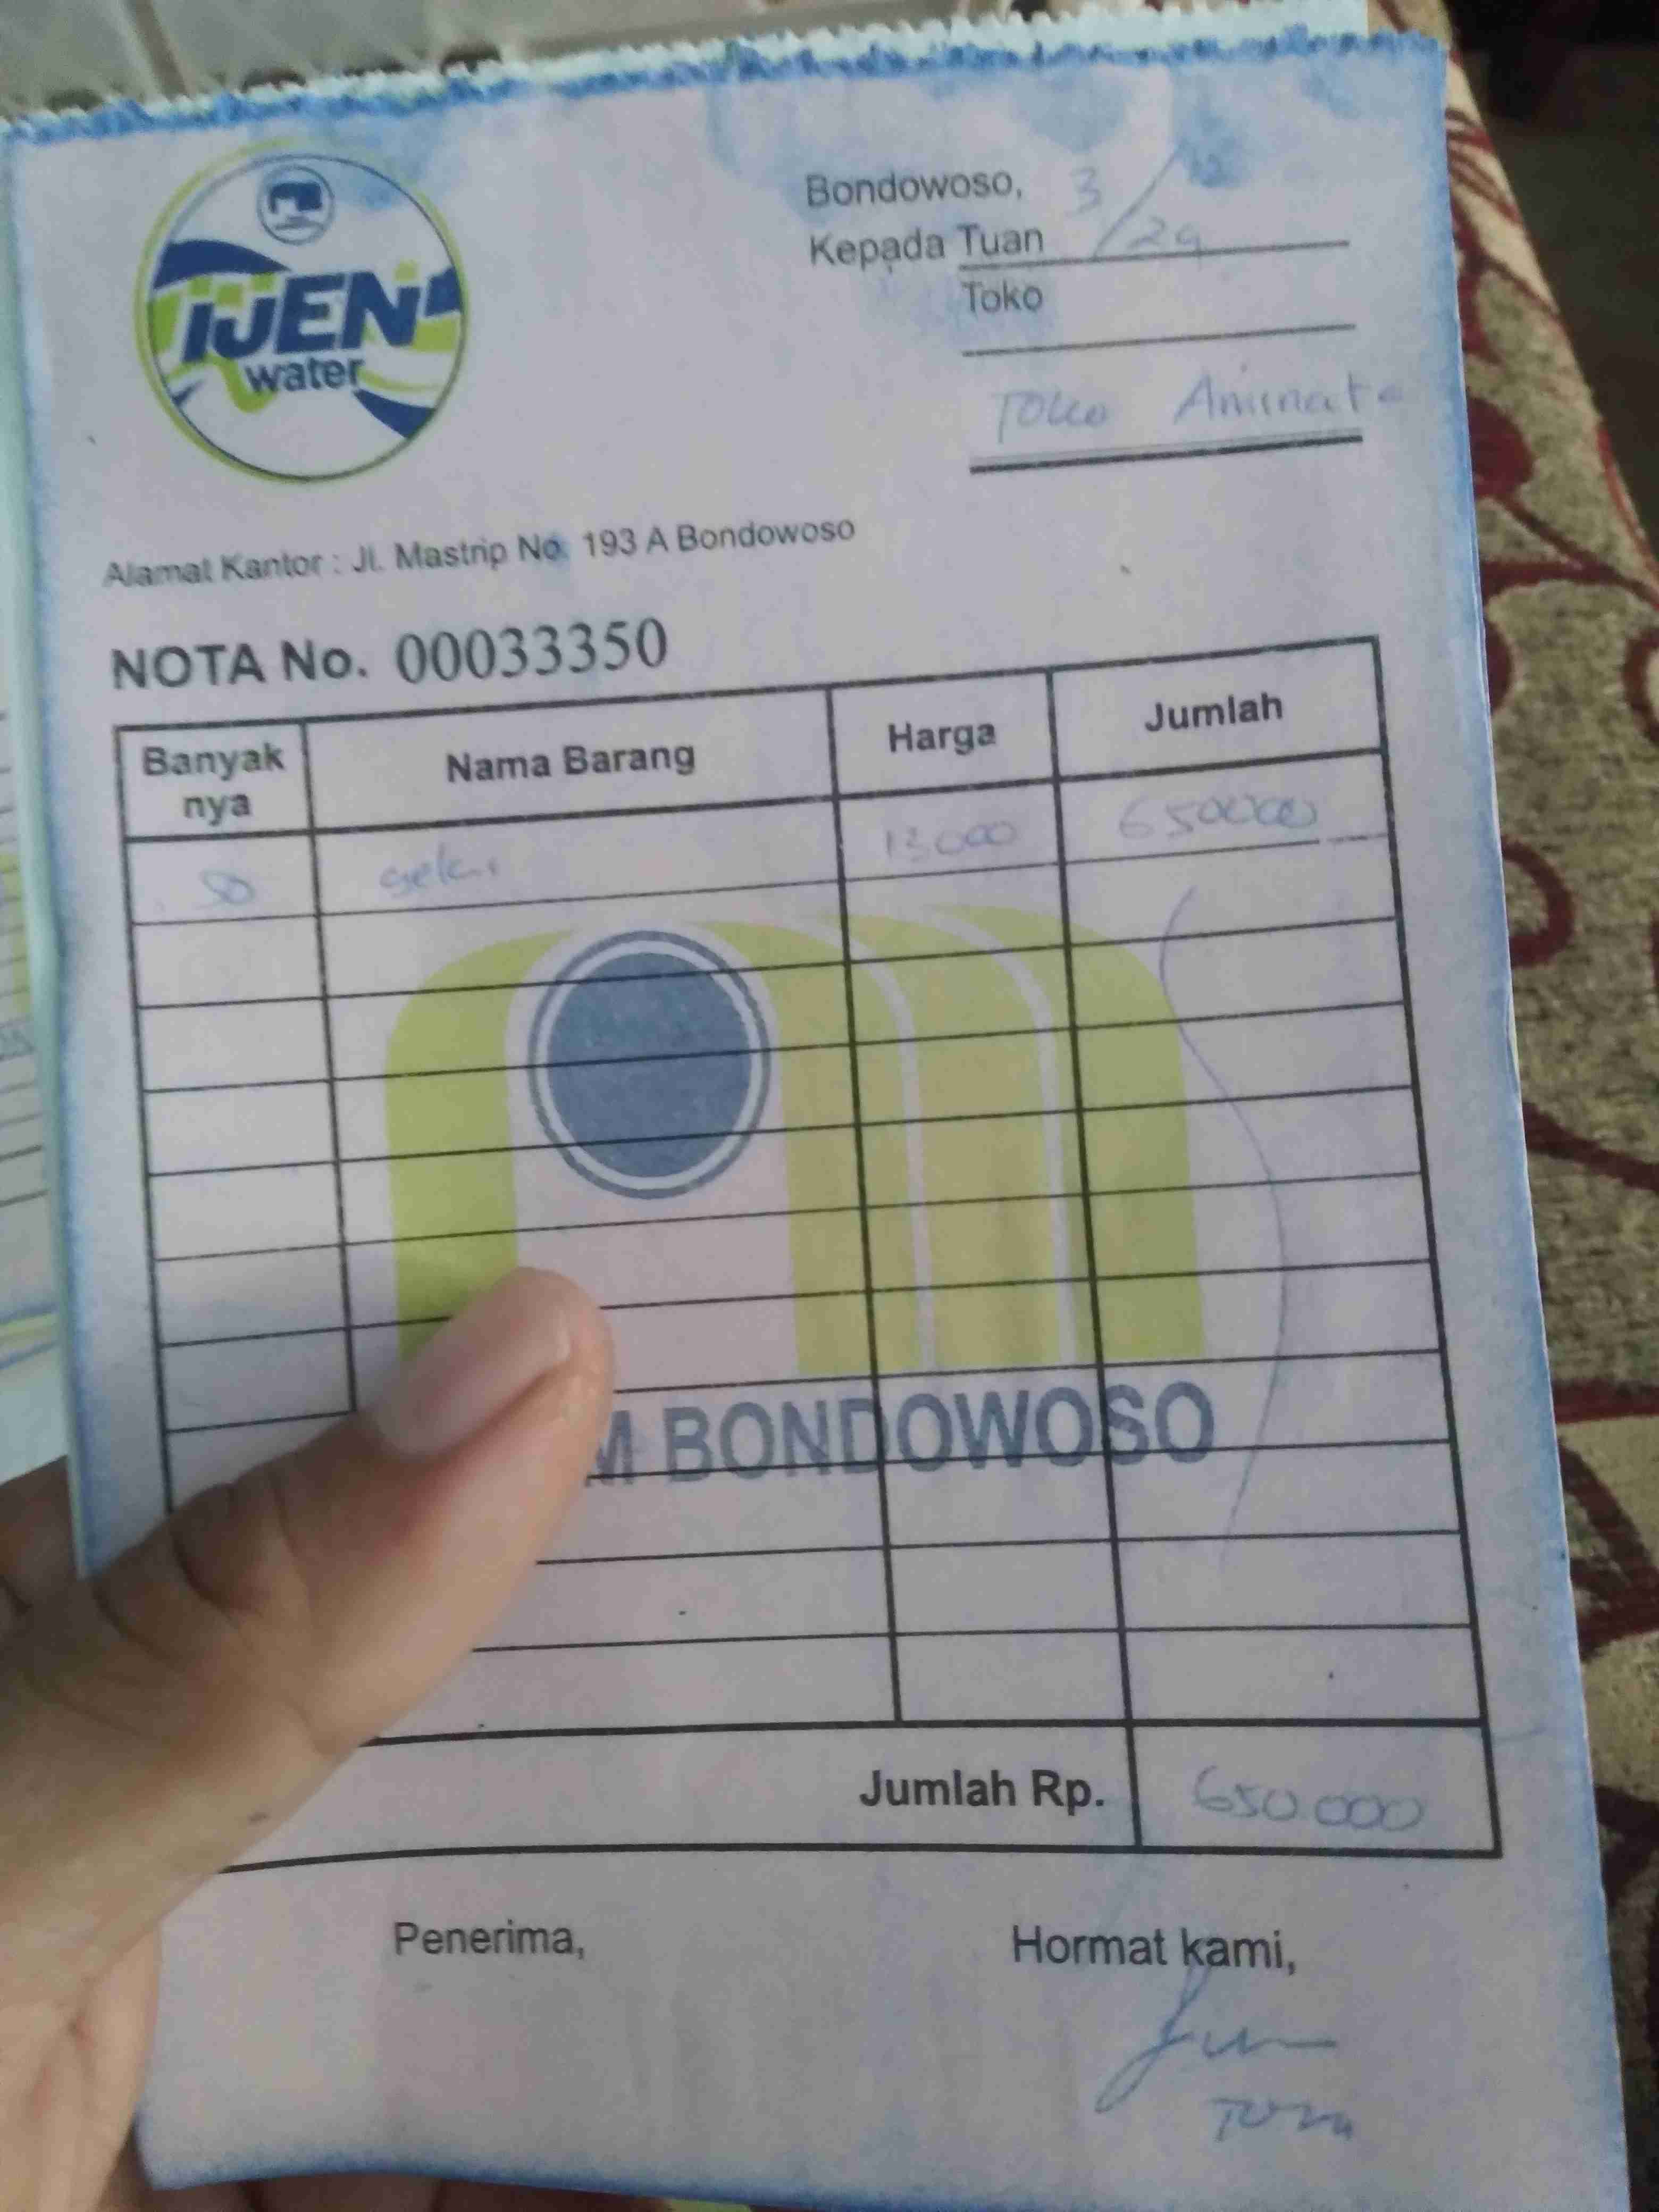 IJEN
water
Bondowoso, 3/12
Kepada Tuan /24
Toko
Toko Aminata
Alamat Kantor : Jl. Mastrip No. 193 A Bondowoso
NOTA No. 00033350
Banyak nya Nama Barang Harga Jumlah
50 13000 650000
M BONDOWOSO
Jumlah Rp. 650.000
Penerima, Hormat kami,